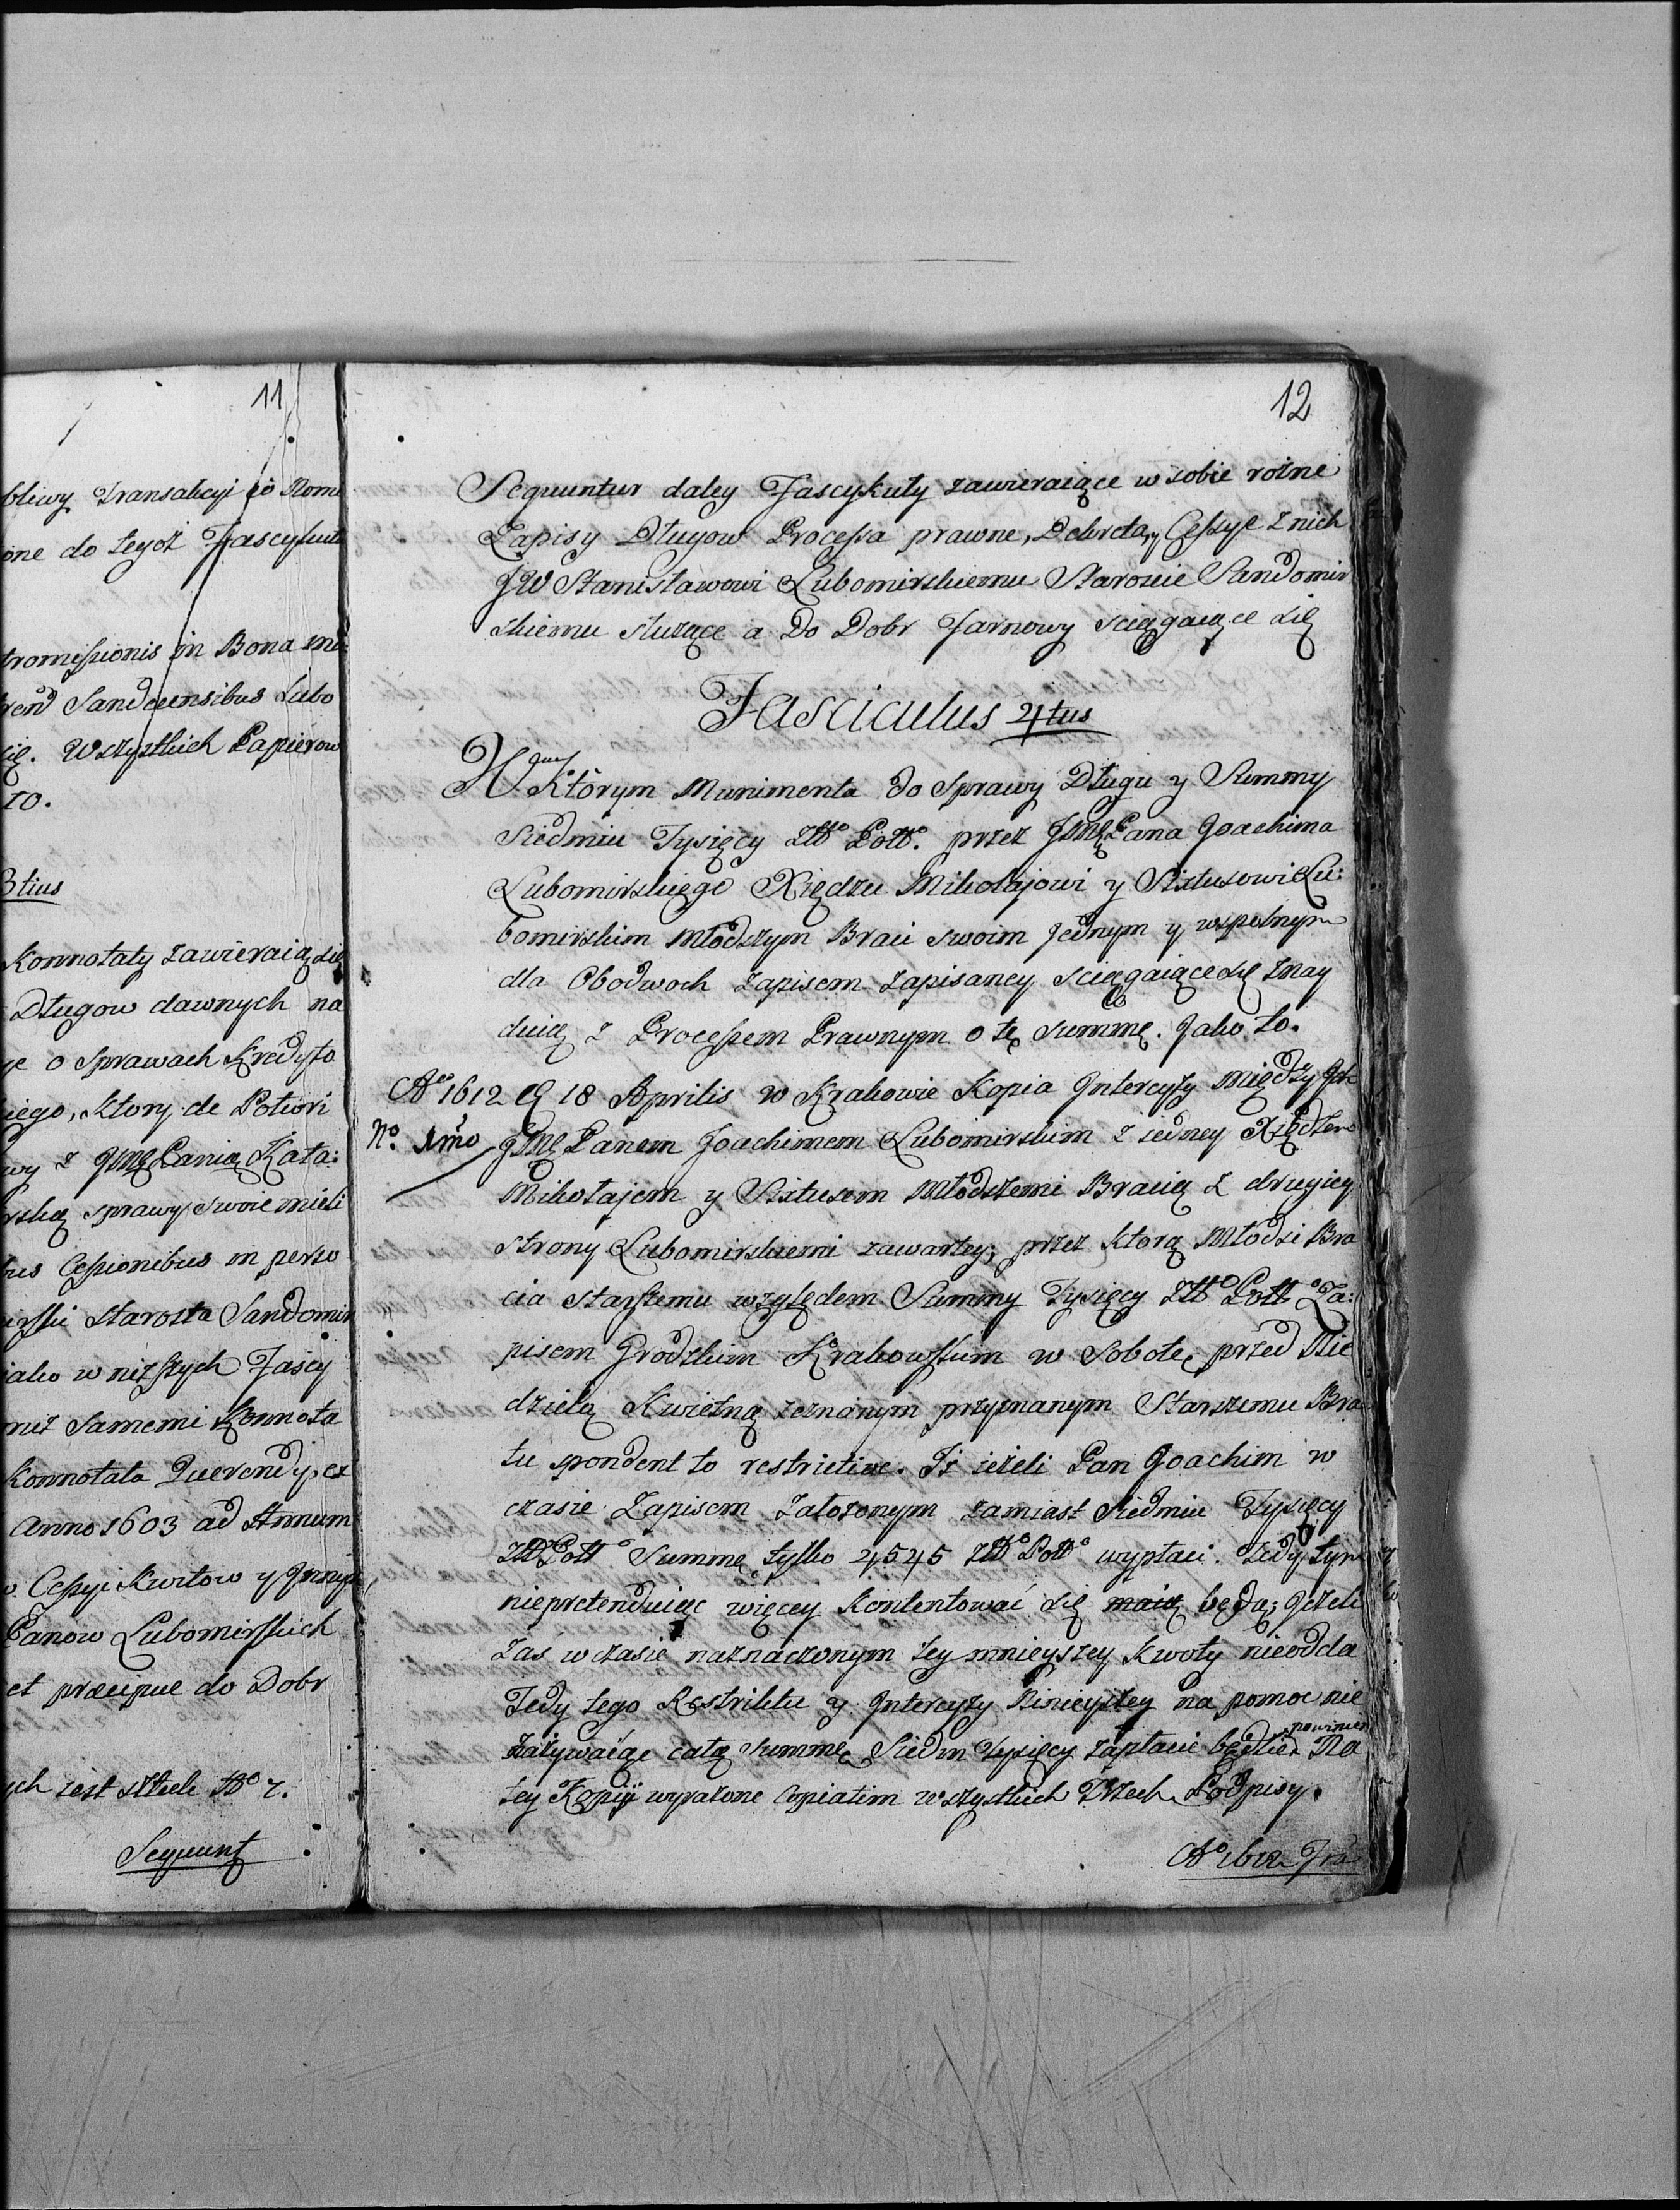 11
bliwy Transakcyi
one do tegoż Fascykuł
tromissionis in Bona
Sandecensibus Lubo
się. Wszystkich Papierow
10.
3tius
Konnotaty zawieraią się
Długow dawnych na
o Sprawach Kredyto
iego, ktory de Potiori
wy z JMę Panią Kata:
rską sprawy swoie mieli
bus Cessionibus in perso
irski Starosta Sandomir
iako w niższych Fascy
niz Samemi Konnota
Konnotata Querendy, ex
Anno 1603 ad Annum
Cessyi Kwitow y Innych
Panow Lubomirskich
et præcipue do Dobr
ych iest sztuk No 7.
Sequunt
12
Sequuntur daley Fascykuły zawieraiące w sobie rożne
Zapisy Długow Processa prawne, Dekreta, y Cessye z nich
JW Stanisławowi Lubomirskiemu Staroście Sandomir
skiemu służące a Do Dobr Tarnowy sciągaiące się
Fasciculus 4tus
W Którym Munimenta do Sprawy Długu y Summy
Siedmiu Tysięcy Złło Pollo. przez JMę Pana Joachima
Lubomirskiego Xiędzu Mikołajowi y Sixtusowi Lu:
bomirskim młodszym Braci swoim Jednym y wspolnym
dla Obodwoch zapisem zapisaney sciągaiące się znay
duią z Processem Prawnym o tę Summę. Jako to.
Ao 1612 18 Aprilis w Krakowie Kopia Intercyzy między
No. 1mo JMę Panem Joachimem Lubomirskim z iedney Xiędzem
Mikołajem y Sixtusem Młodszemi Bracią z drugiey
Strony Lubomirskiemi zawartey, przez ktorą Młodsi Bra
cia starszemu względem Summy Tysięcy Złło Poll Za:
pisem Grodzkim Krakowskim w Sobotę przed Nie
dzielą Kwietną zeznanym przyznanym Starszemu Bra
tu spondent to restrictive. Iż ieżeli Pan Joachim w
czasie Zapisem założonym zamiast Siedmiu Tysięcy
Złło Pollo Summę tylko 4545 Złło Pollo wypłaci. Tedy tym
niepretenduiąc więcey kontentować się maią będą; Jeżeli
zaś w czasie naznaczonym tey mnieyszey kwoty nieodda
Tedy tego Restriktu y Intercyzy Ninieyszey na pomoc nie
zażywaiąc całą summę Siedm Tysięcy zapłacic będzie powinien Na
tey Kopiy wyrażone Copiatim wszystkich Trzech Podpisy.
Ao 1612